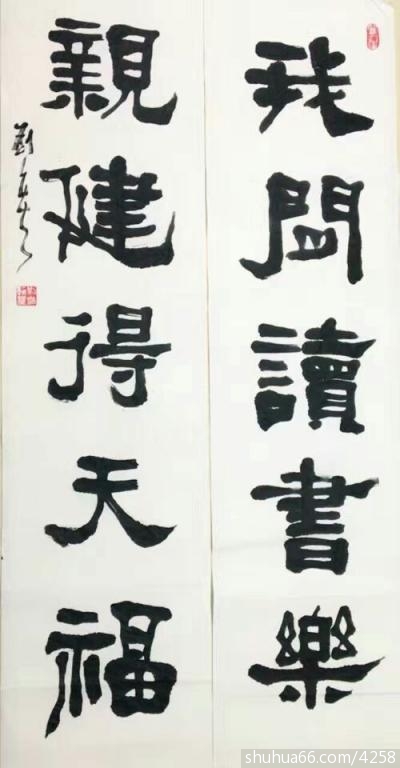 我間讀書樂
親健得天福
劉
shuhua66.com/4258